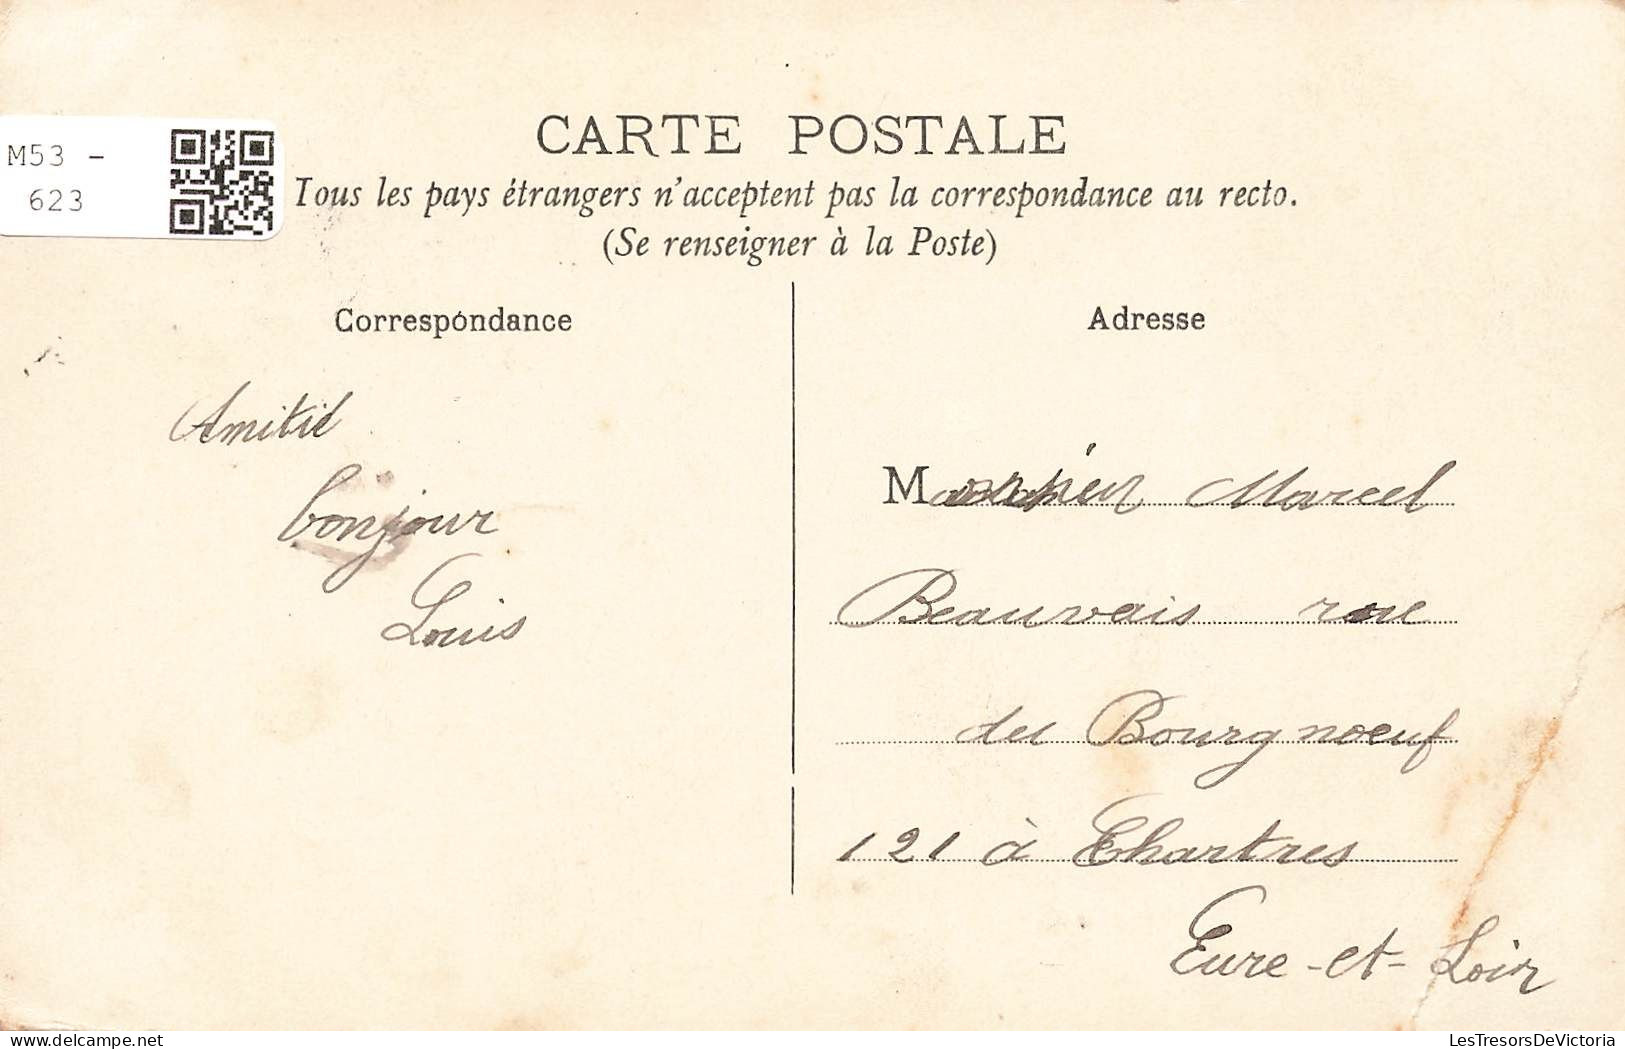 M53 -
623
CARTE POSTALE
Tous les pays étrangers n'acceptent pas la correspondance au recto.
(Se renseigner à la Poste)
Correspondance
Adresse
Amitié
bonjour
Louis
M Marcel
Beauvais rue
du Bourgneuf
121 à Chartres
Eure-et-Loir
LesTresorsDeVictoria
delcampe.net